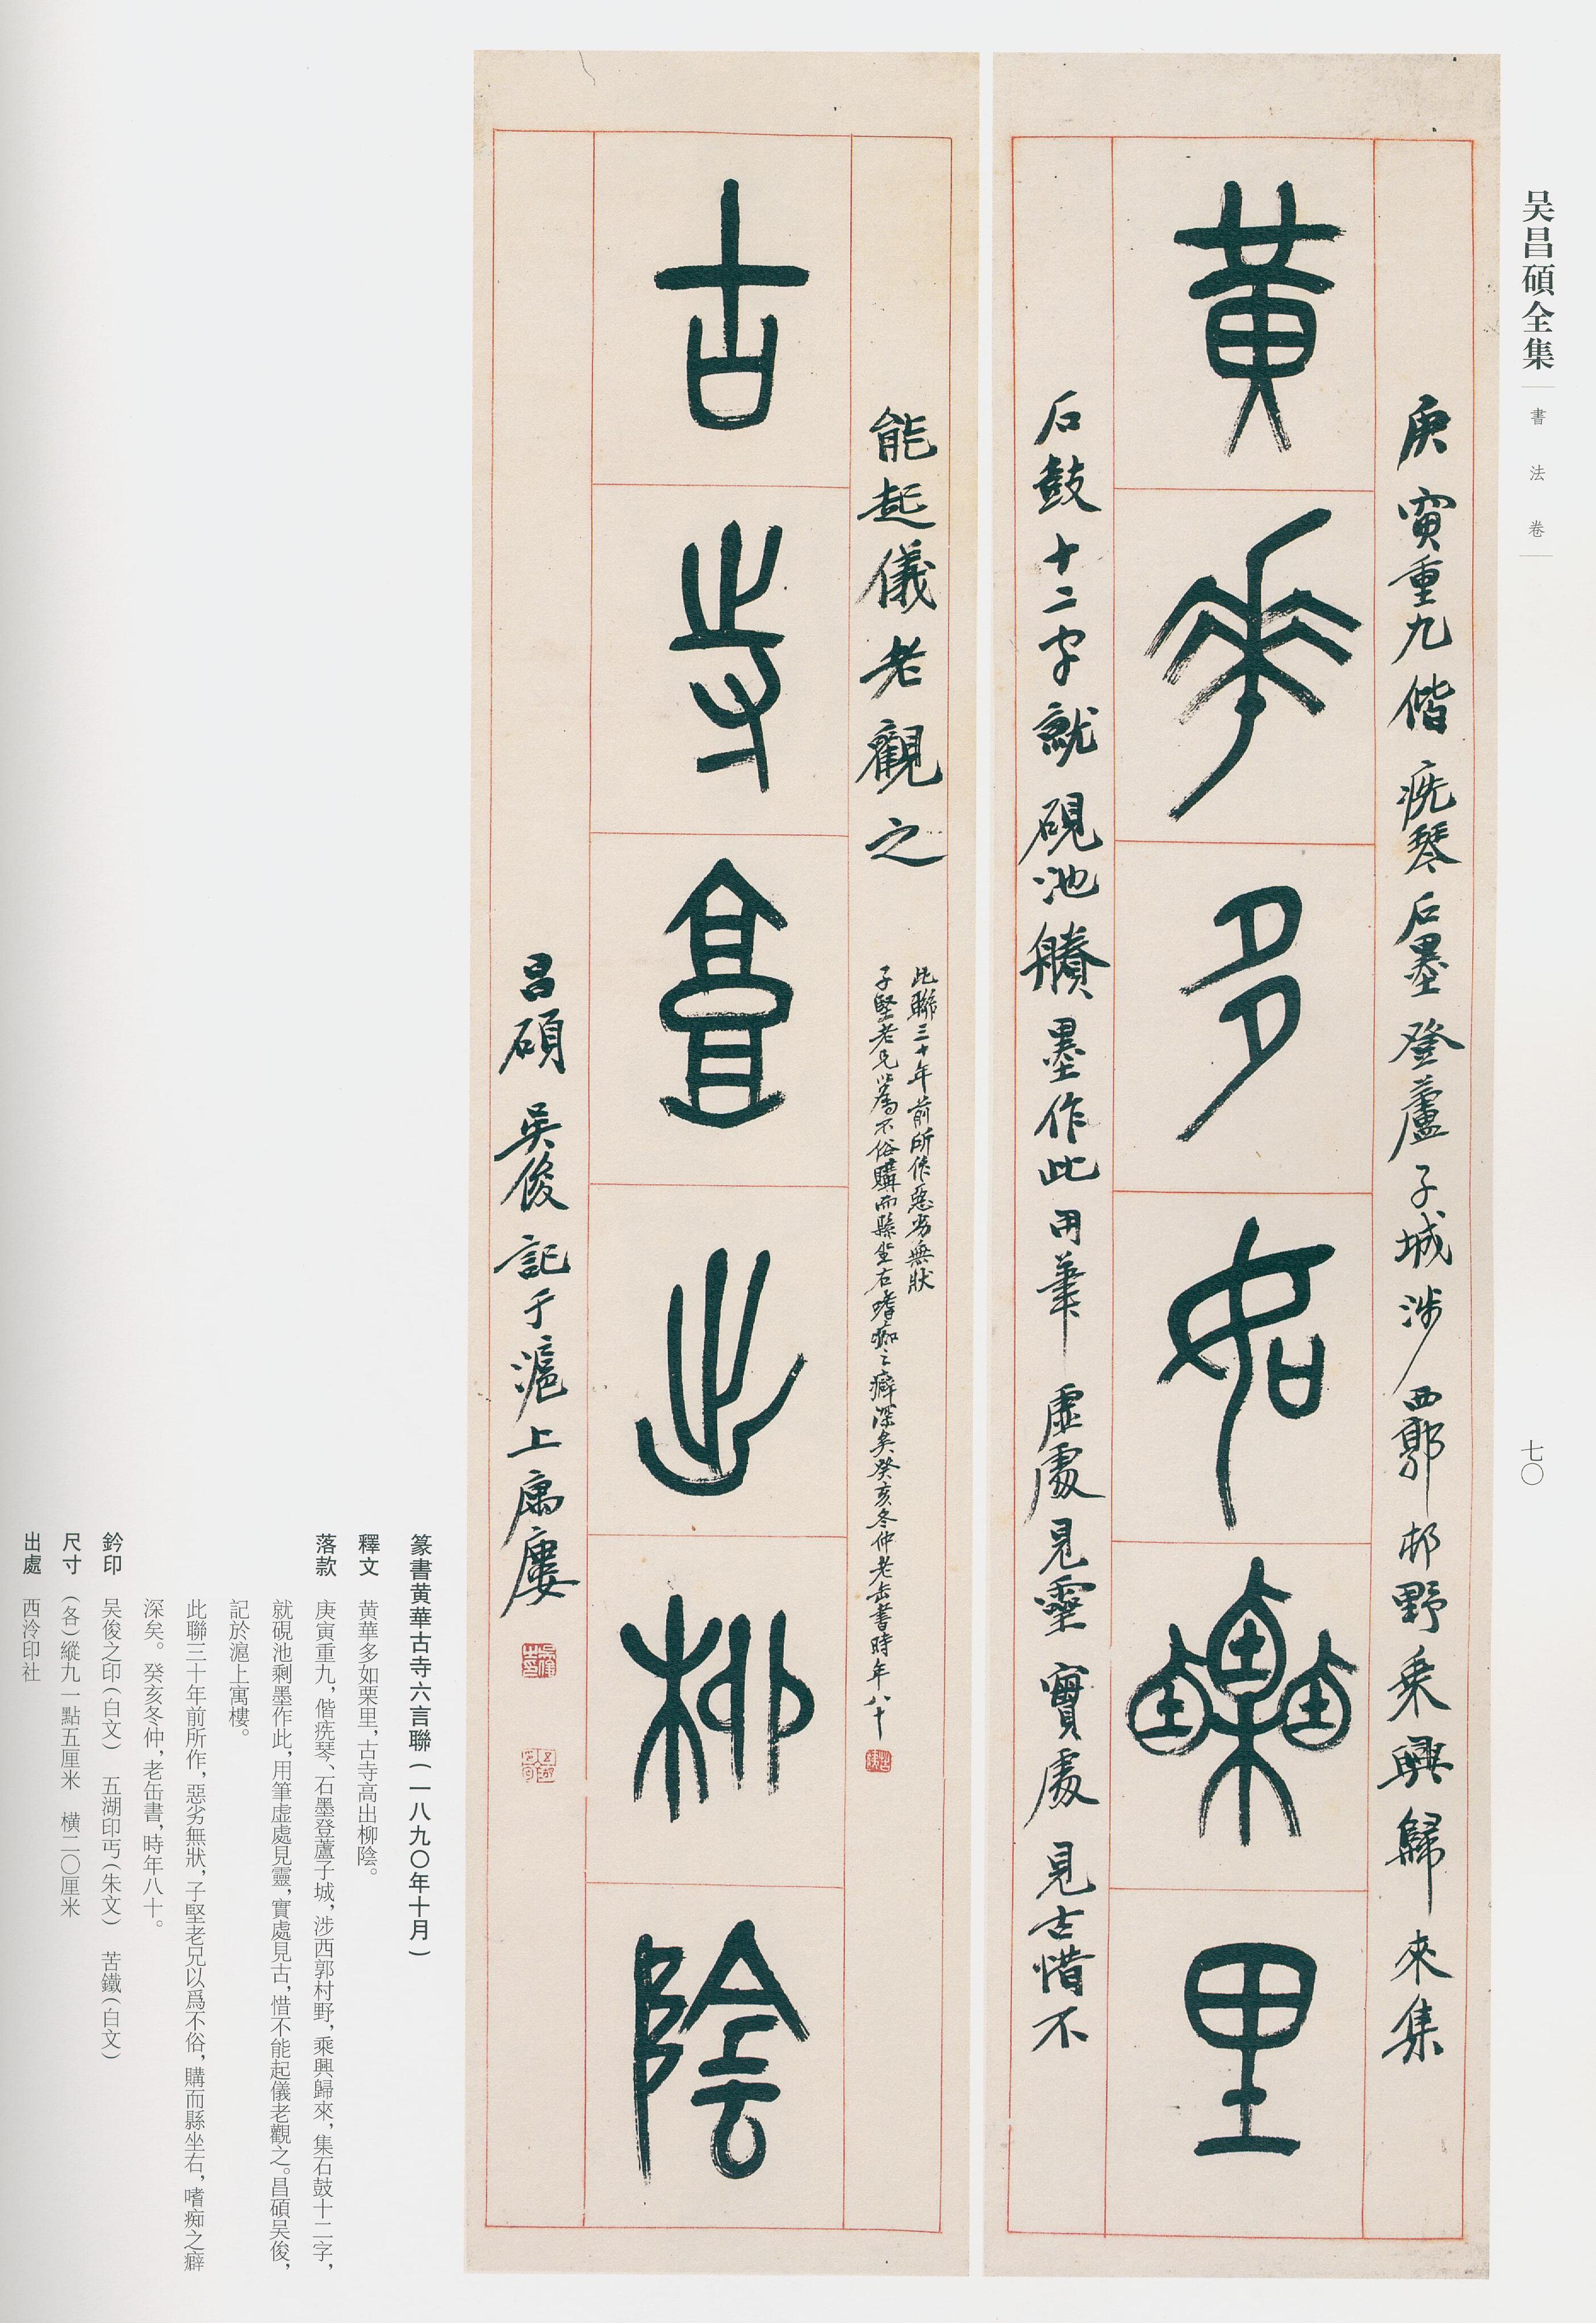 吴昌碩全集
書法卷
七〇
庚寅重九偕疣琴石墨登蘆子城涉西郭邨野乘興歸來集
黄華多如栗里
石鼓十二字就硯池賸墨作此用筆虛處見靈實處見古惜不
能起儀老觀之
此聯三十年前所作惡劣無狀
子堅老兄以為不俗購而縣坐右嗜痂之癖深矣癸亥冬仲老缶書時年八十
古寺高出柳陰
昌碩吳俊記于滬上寓廔
篆書黄華古寺六言聯（一八九〇年十月）
釋文 黄華多如栗里，古寺高出柳陰。
落款 庚寅重九，偕疣琴、石墨登蘆子城，涉西郭村野，乘興歸來，集石鼓十二字，
就硯池剩墨作此，用筆虛處見靈，實處見古，惜不能起儀老觀之。昌碩吴俊，
記於滬上寓樓。
此聯三十年前所作，惡劣無狀，子堅老兄以爲不俗，購而縣坐右，嗜痴之癖
深矣。癸亥冬仲，老缶書，時年八十。
鈐印 吴俊之印（白文） 五湖印丐（朱文） 苦鐵（白文）
尺寸 （各）縱九一點五厘米 橫二〇厘米
出處 西泠印社